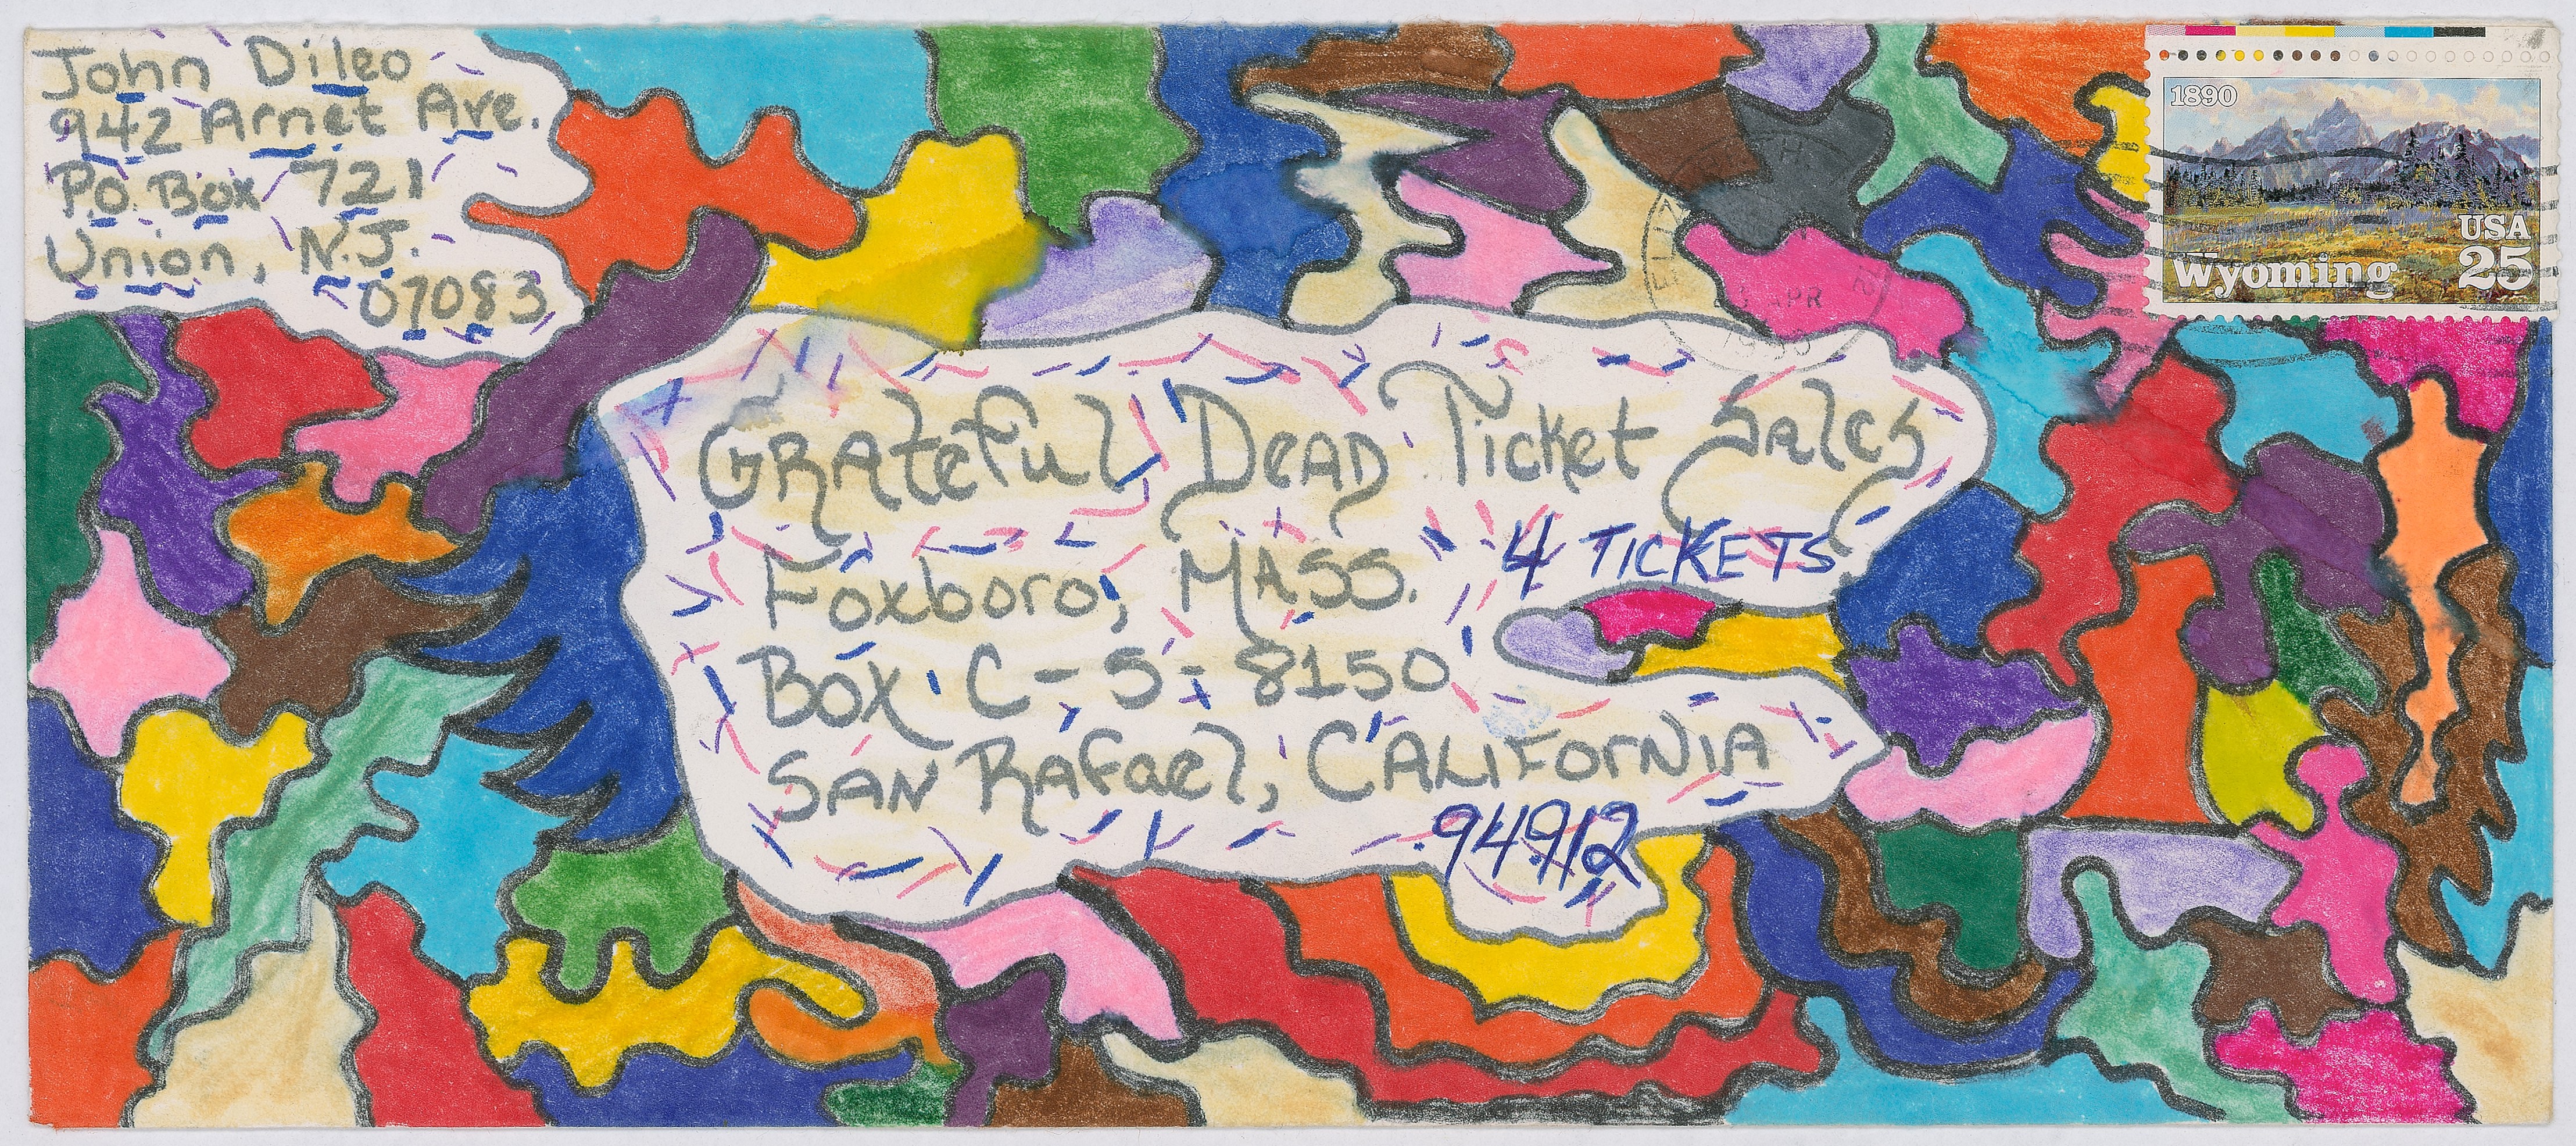 John Dileo
942 Arnet Ave.
P.O. Box 721
Union, N.J.
07083
1890
USA
25
Wyoming
APR
Grateful Dead Ticket Sales
Foxboro, MASS.
4 TICKETS
Box C-S-8150
SAN Rafael, CALIFORNIA
94912